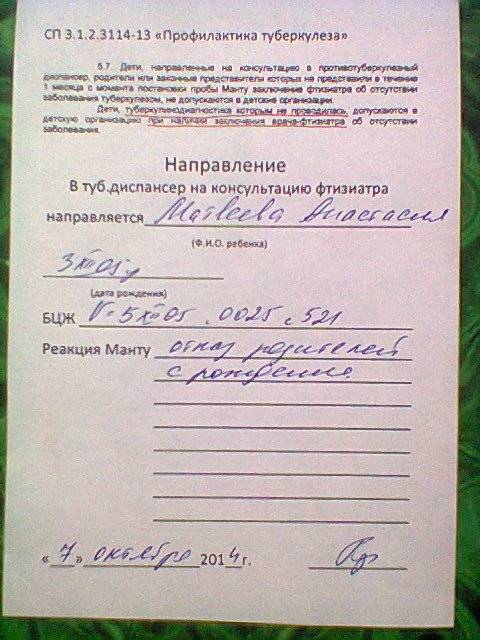 СП 3.1.2.3114-13 «Профилактика туберкулеза»
6.7. Дети, направленные на консультацию в противотуберкулезный
диспансер, родители или законные представители которых не представили в течение
1 месяца с момента постановки пробы Манту заключение фтизиатра об отсутствии
заболевания туберкулезом, не допускаются в детские организации.
Дети, туберкулинодиагностика которым не проводилась, допускаются в
детскую организацию при наличии заключения врача-фтизиатра об отсутствии
заболевания.
Направление
В туб.диспансер на консультацию фтизиатра
направляется Матвеева Анастасия
(Ф.И.О. ребенка)
3 XII 05 г
(дата рождения)
БЦЖ V-5 XII 05 . 0025 с 521
Реакция Манту отказ родителей
с рождения.
«7» октября 2014г.